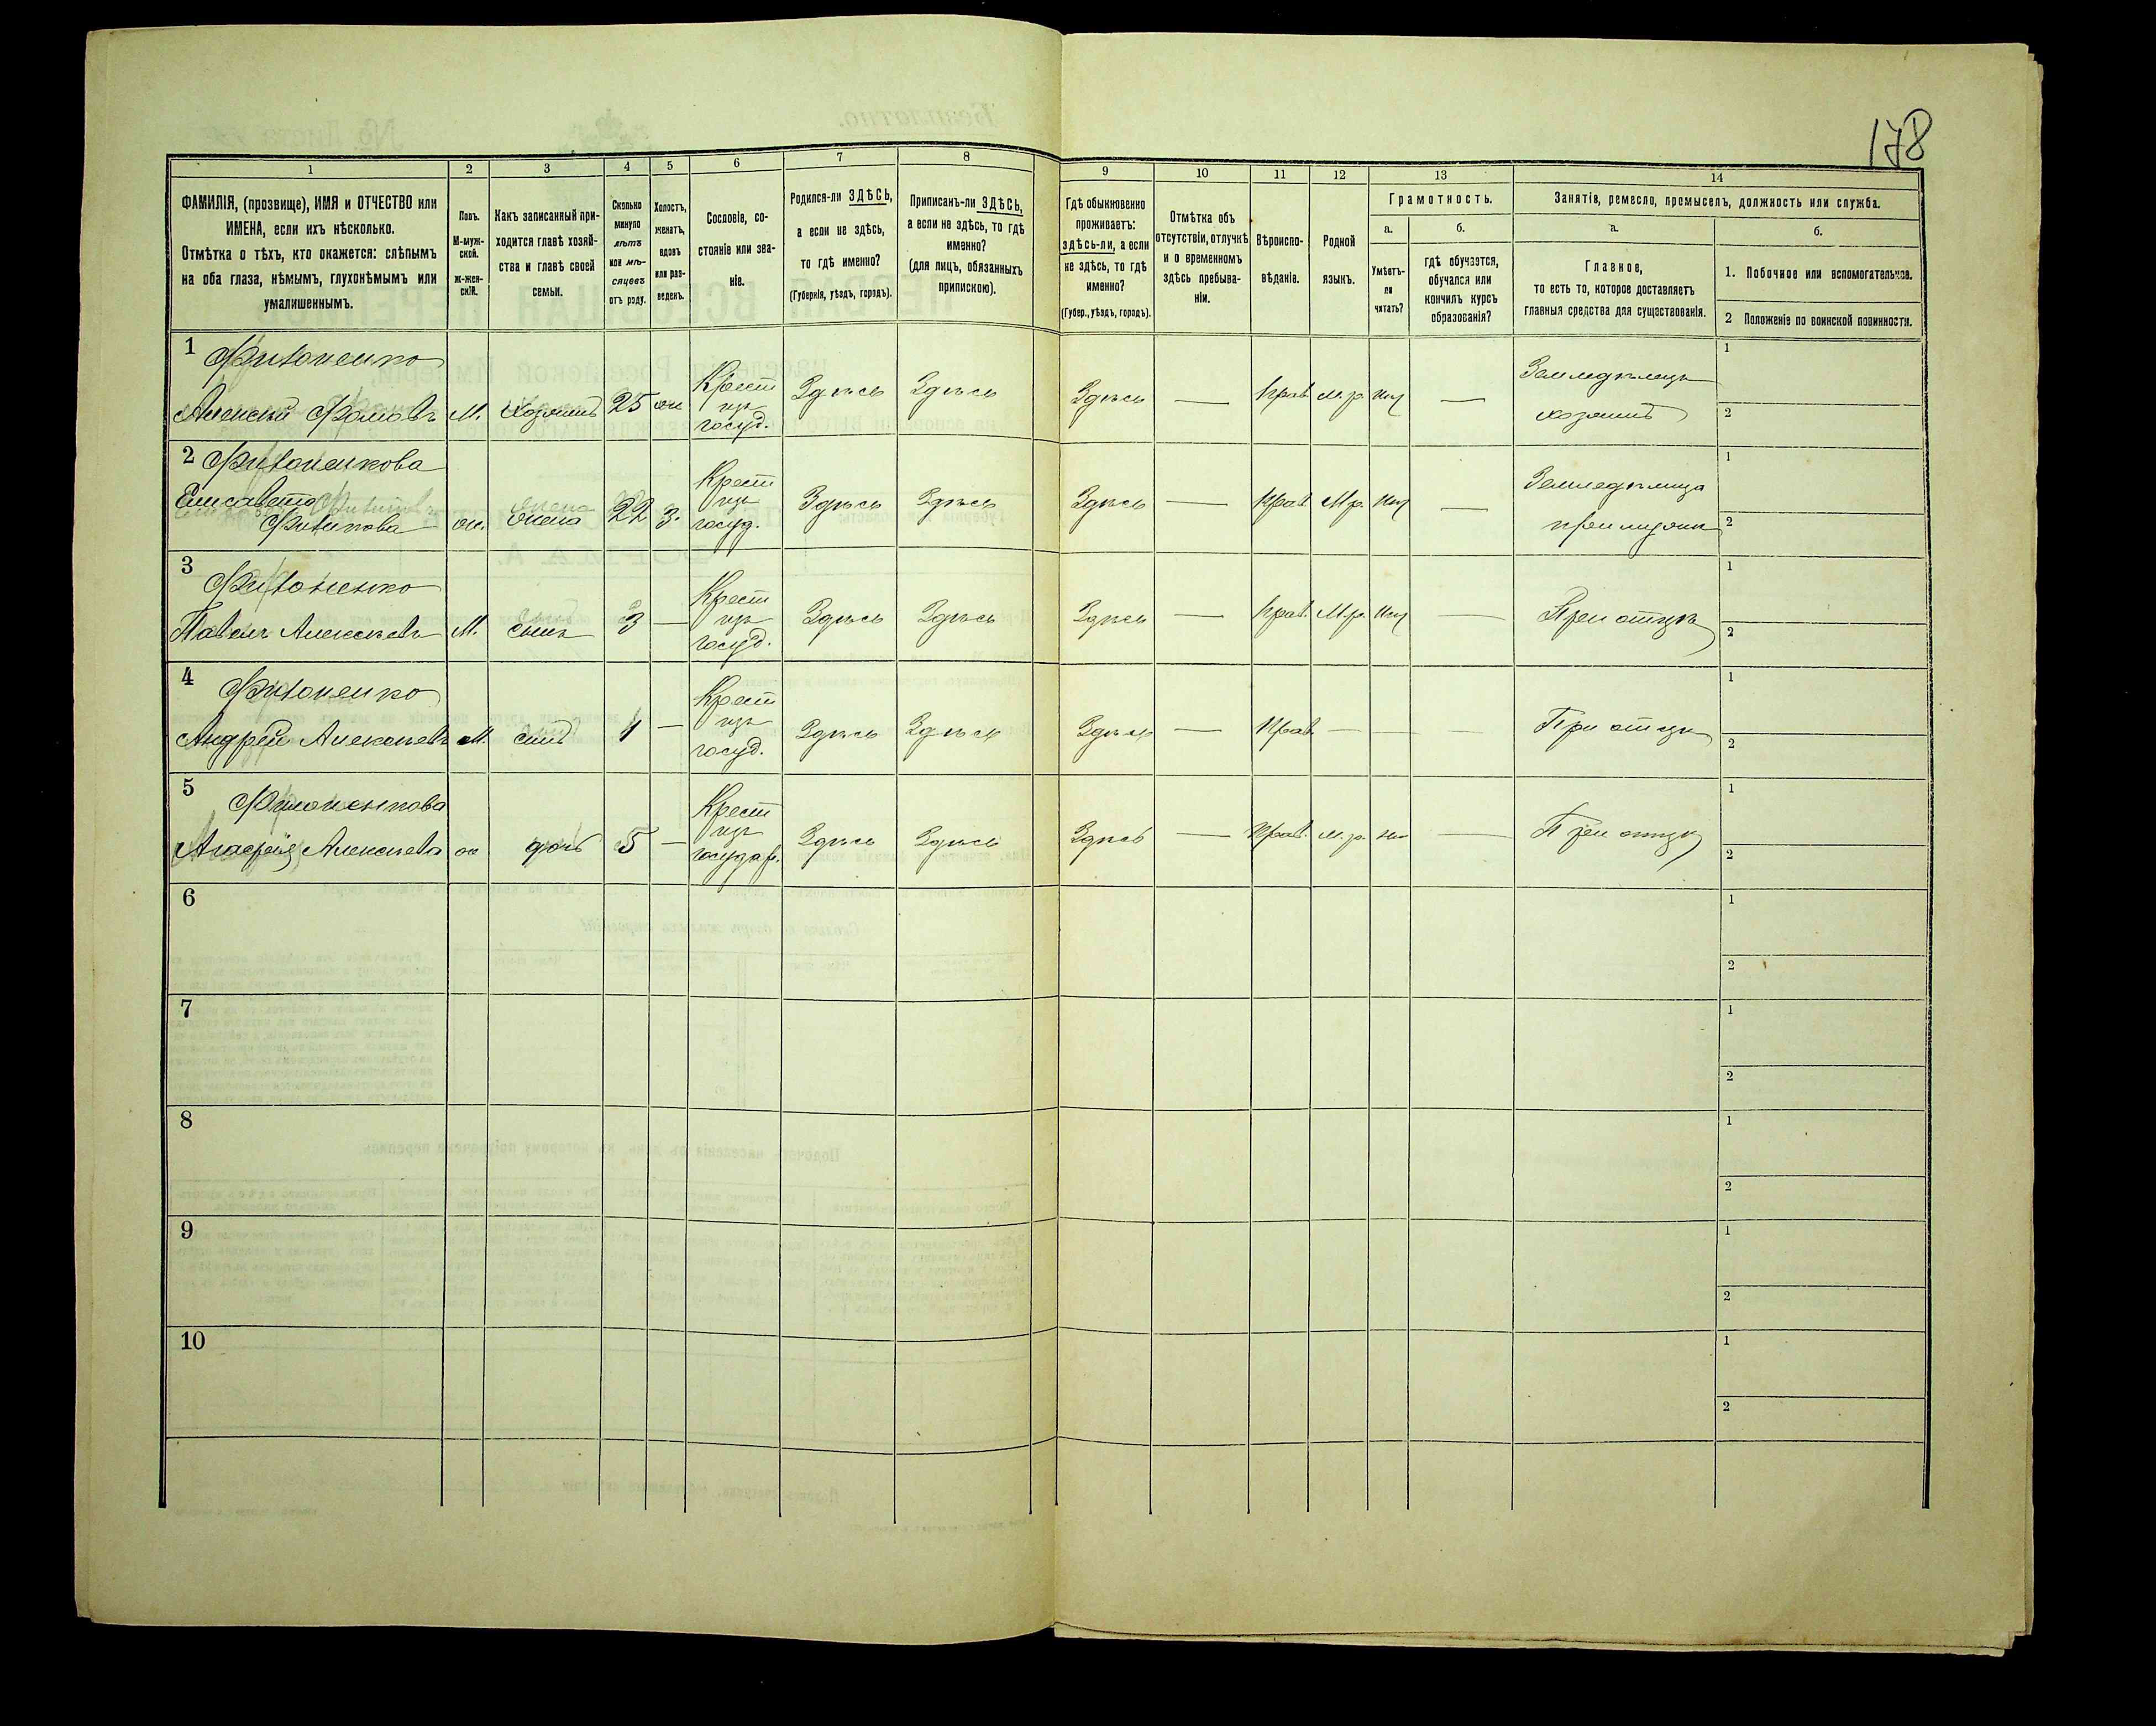 178
1
2
3
4
5
6
7
8
ФАМИЛІЯ, (прозвище), ИМЯ и ОТЧЕСТВО или
ИМЕНА, если ихъ нѣсколько.
Отмѣтка о тѣхъ, кто окажется: слѣпымъ
на оба глаза, нѣмымъ, глухонѣмымъ или
умалишеннымъ.
Полъ.
М-муж-
ской.
ж-жен-
скій.
Какъ записанный при-
ходится главѣ хозяй-
ства и главѣ своей
семьи.
Сколько
минуло
лѣтъ
или мѣ-
сяцевъ
отъ роду.
Холостъ,
женатъ,
вдовъ
или раз-
веденъ.
Сословіе, со-
стояніе или зва-
ніе.
Родился-ли ЗДѢСЬ,
а если не здѣсь,
то гдѣ именно?
(Губернія, уѣздъ, городъ).
Приписанъ-ли ЗДѢСЬ,
а если не здѣсь, то гдѣ
именно?
(для лицъ, обязанныхъ
припискою).
9
10
11
12
13
14
Гдѣ обыкновенно
проживаетъ:
здѣсь-ли, а если
не здѣсь, то гдѣ
именно?
(Губер., уѣздъ, городъ).
Отмѣтка объ
отсутствіи, отлучкѣ
и о временномъ
здѣсь пребыва-
ніи.
Вѣроиспо-
вѣданіе.
Родной
языкъ.
Грамотность.
а.
Умѣетъ-
ли
читать?
б.
гдѣ обучается,
обучался или
кончилъ курсъ
образованія?
Занятіе, ремесло, промыселъ, должность или служба.
а.
Главное,
то есть то, которое доставляетъ
главныя средства для существованія.
б.
1. Побочное или вспомогательное.
2 Положеніе по воинской повинности.
1 Филоненко
Алексѣй Фомовъ М. Хозяинъ 25 ж Крест изъ госуд. Здѣсь Здѣсь Здѣсь — Прав. м.р. — Земледѣлецъ хозяинъ 1 2
2 Филоненкова
Елисавета
Филипова ж. жена 22 З. Крест изъ госуд. Здѣсь Здѣсь Здѣсь — Прав. М.р. — Земледѣлица при мужѣ 1 2
3 Филоненко
Павелъ Алексѣевъ М. сынъ 3 — Крест изъ госуд. Здѣсь Здѣсь Здѣсь — Прав. М.р. — При отцѣ 1 2
4 Филоненко
Андрей Алексѣевъ М. сынъ 1 — Крест изъ госуд. Здѣсь Здѣсь Здѣсь — Прав. — — — При отцѣ 1 2
5 Филоненкова
Агафія Алексѣева ж дочь 5 — Крест изъ государ. Здѣсь Здѣсь Здѣсь — Прав. м.р. — При отцѣ 1 2
6 1 2
7 1 2
8 1 2
9 1 2
10 1 2